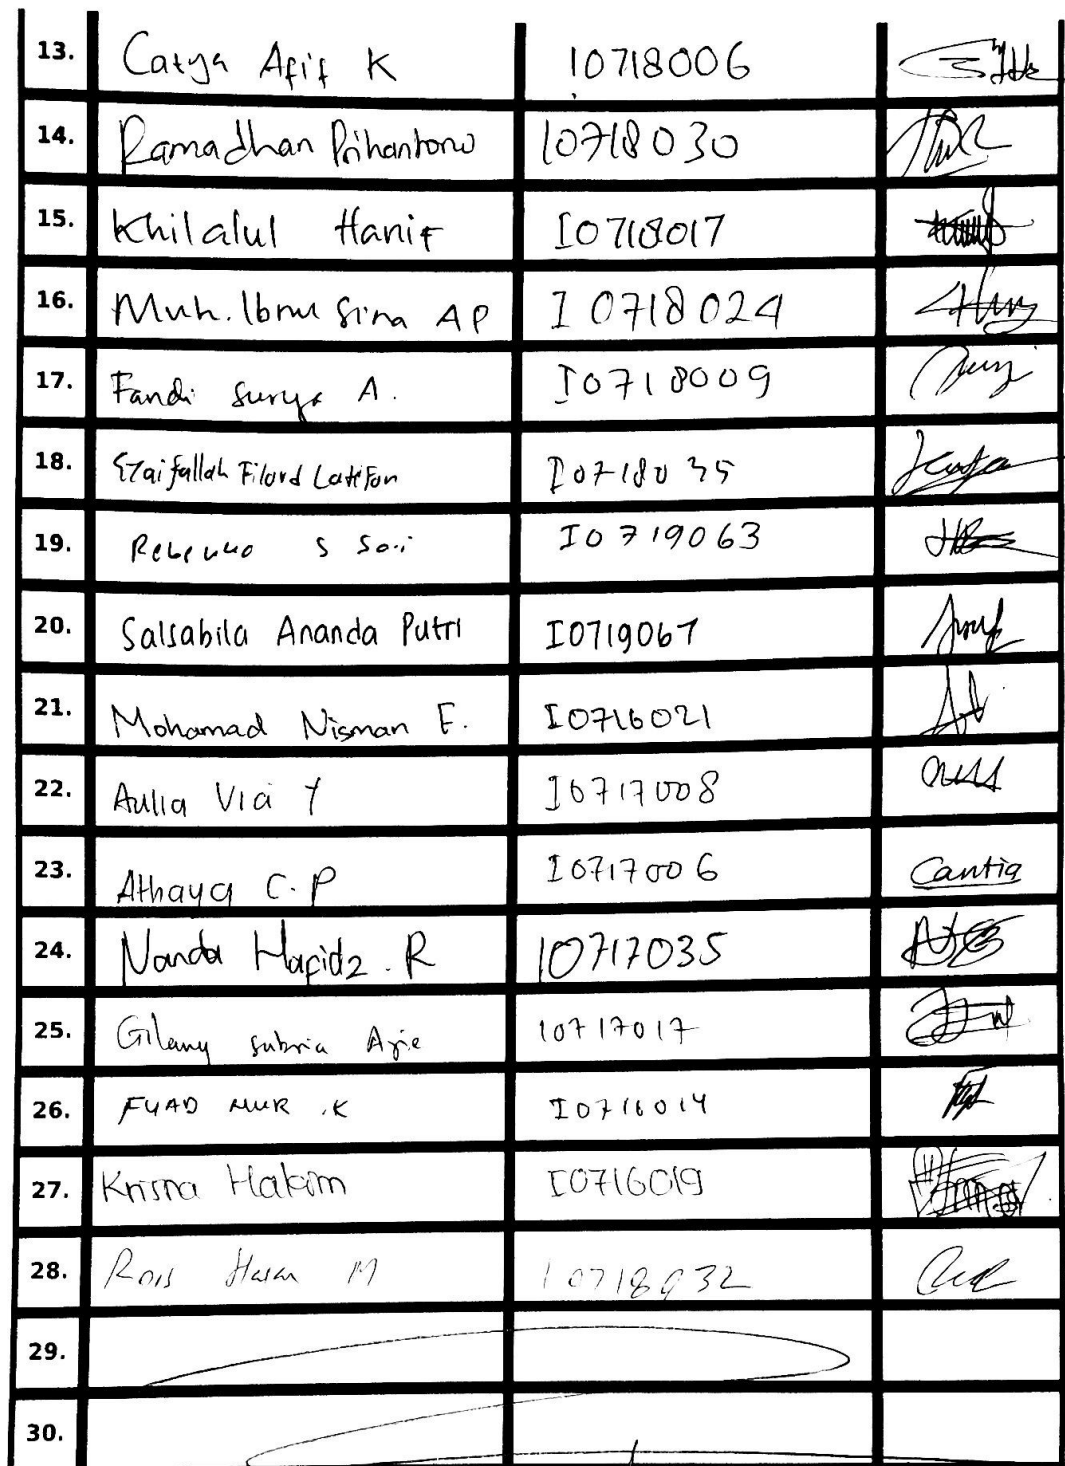 13. Catya Afif K I0718006
14. Ramadhan Prihantono I0718030
15. Khilalul Hanif I0718017
16. Muh. Ibnu Sina AP I0718024
17. Fandi Surya A. I0718009
18. Filard Latifan I0718035
19. S Sari I0719063
20. Salsabila Ananda Putri I0719067
21. Mohamad Nisman F. I0716021
22. Aulia Via Y I0717008
23. Athaya C. P I0717006 Cantia
24. Nanda Hafidz. R I0717035
25. Gilang Ajie I0717017
26. FUAD NUR .K I0716014
27. Krisna Hakim I0716019
28. Rois Hasan M I0718032
29.
30.